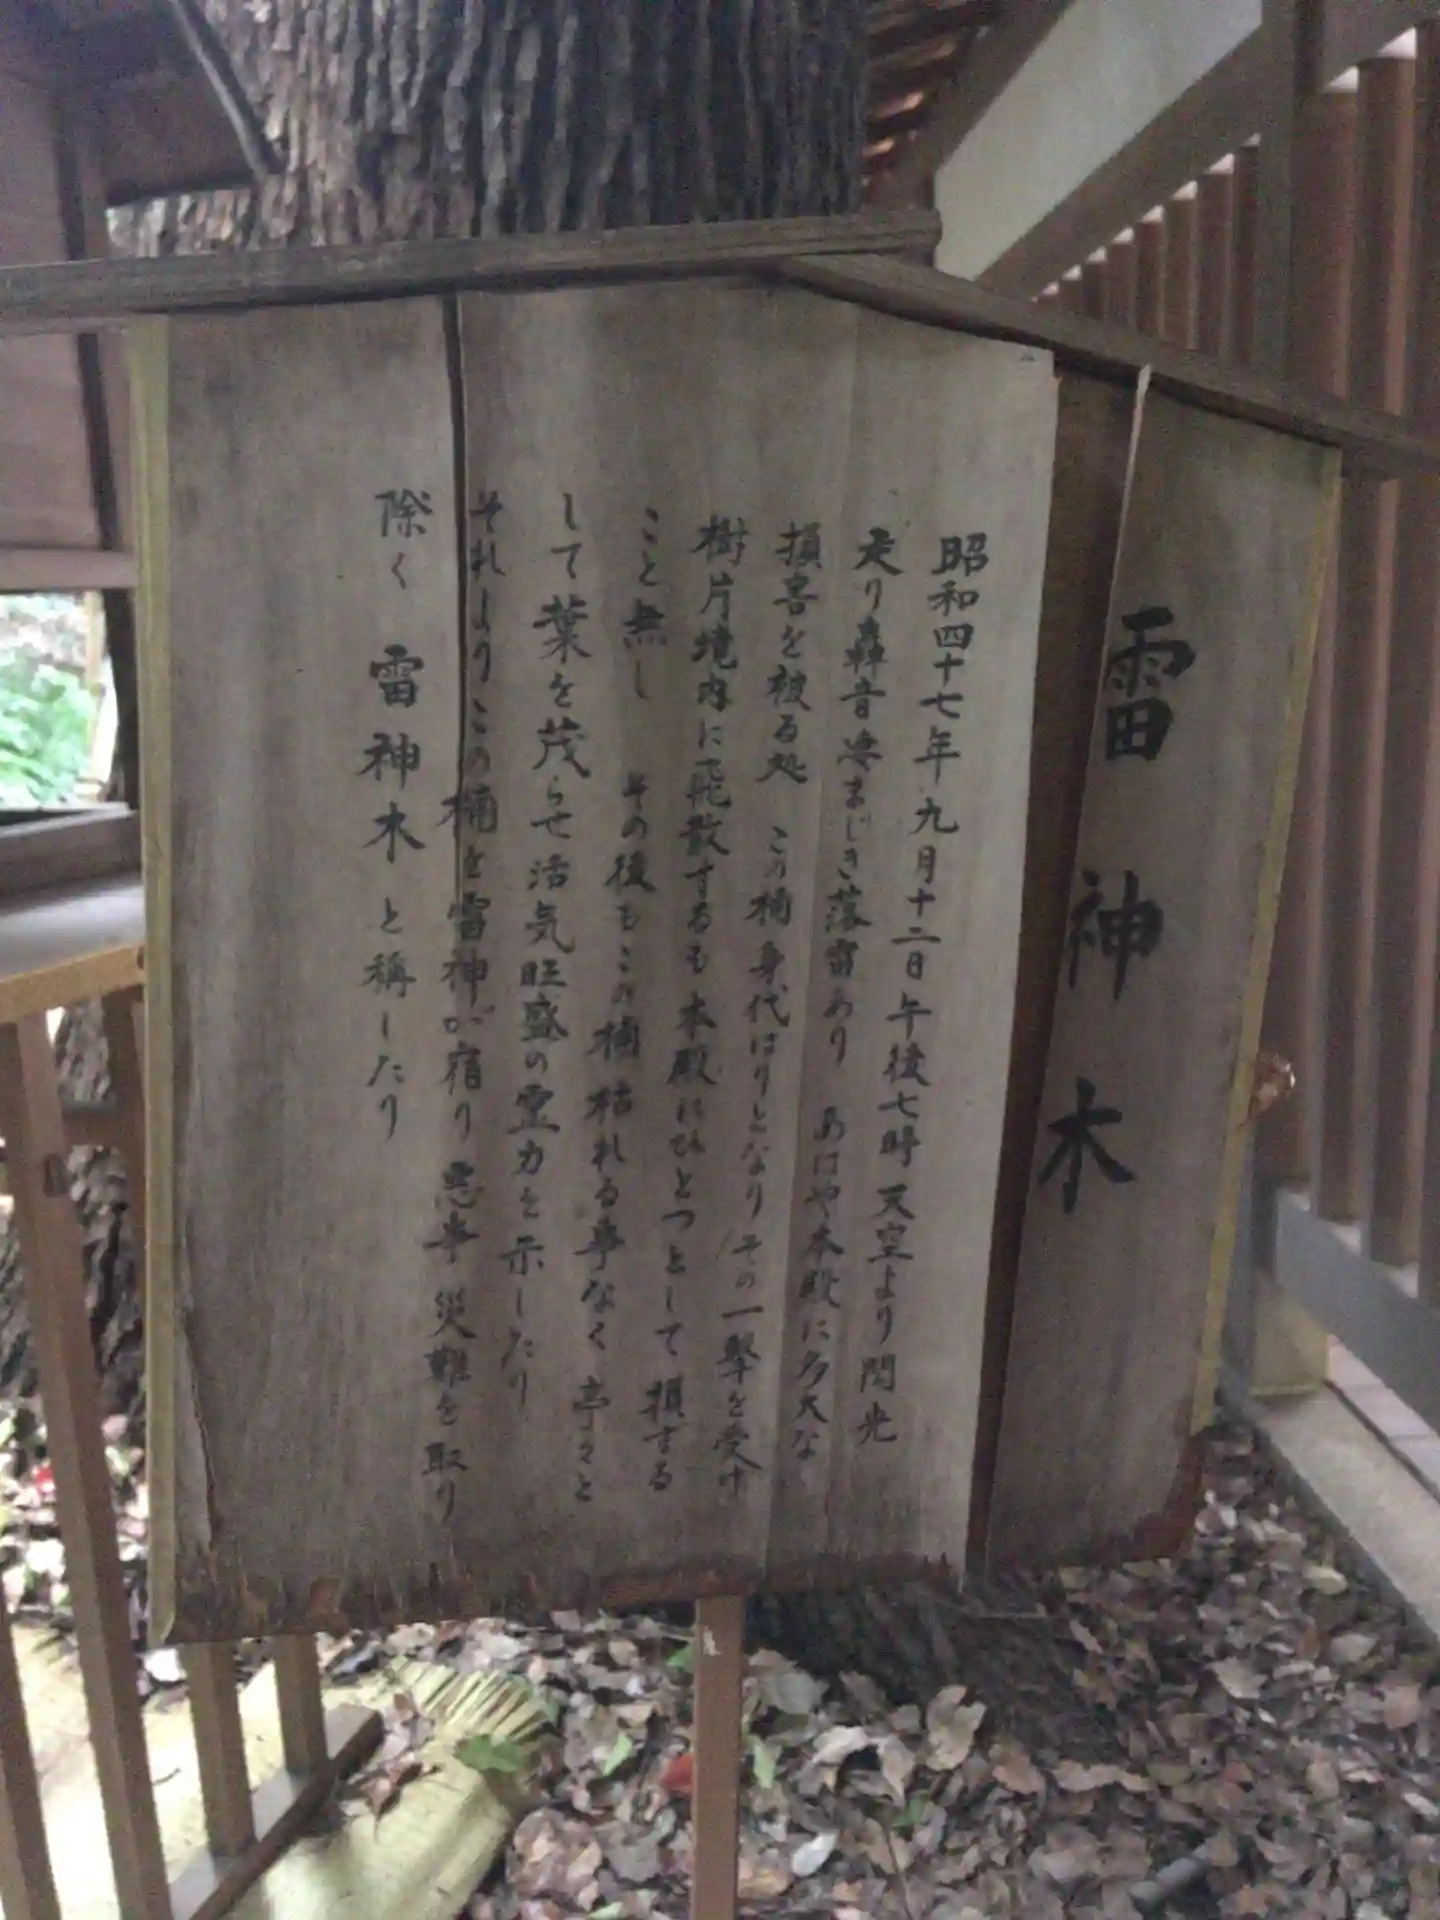 雷神木
昭和四十七年九月十二日午後七時 天空より閃光
走り轟音凄まじき落雷あり あはや本殿に多大な
損害を被る処 この楠身代はりとなり その一撃を受け
樹片境内に飛散するも本殿にひとつとして損する
こと無し その後もこの楠枯れる事なく亭々と
して葉を茂らせ活気旺盛の霊力を示したり
それよりこの楠を雷神が宿り 悪事災難を取り
除く 雷神木と称したり